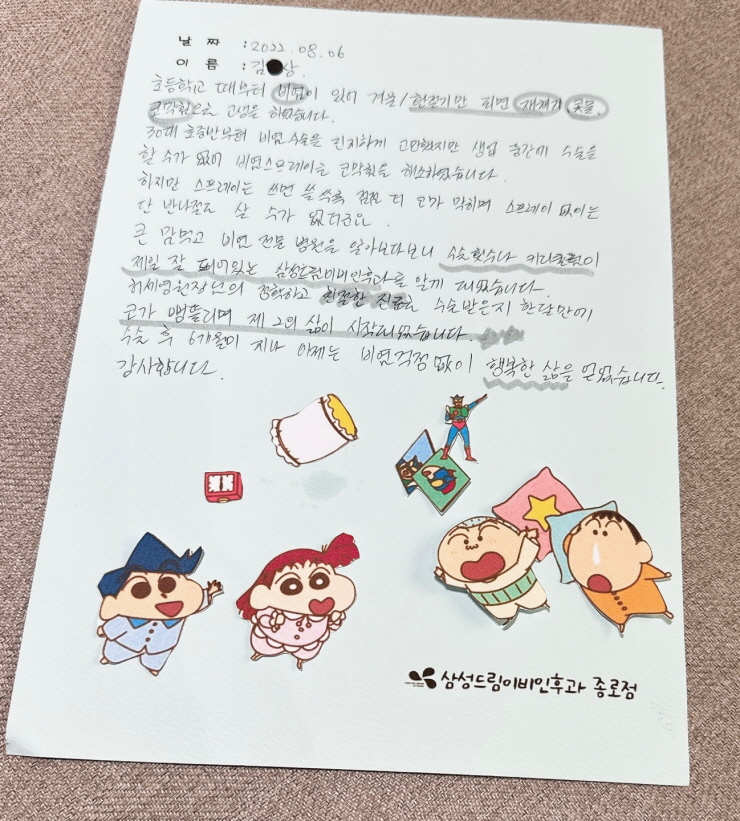 날 짜 : 2022. 08. 06
이 름 : 김 상.
초등학교 때부터 비염이 있어 겨울/환절기만 되면 재채기, 콧물,
코막힘으로 고생을 하였습니다.
30대 초중반부터 비염수술을 진지하게 고민했지만 생업 중간에 수술을
할 수가 없어 비염스프레이로 코막힘을 해소하였습니다.
하지만 스프레이는 쓰면 쓸 수록 점점 더 코가 막히며 스프레이 없이는
단 반나절도 살 수가 없더군요.
큰 맘먹고 비염 전문 병원을 알아보다보니 수술횟수나 커리큘럼이
제일 잘 되어있는 삼성드림이비인후과를 알게 되었습니다.
허세영원장님의 정확하고 친절한 진료로 수술받은지 한달만에
코가 뻥뚫리며 제 2의 삶이 시작되었습니다.
수술 후 6개월이 지나 이제는 비염걱정없이 행복한 삶을 얻었습니다.
감사합니다.
삼성드림이비인후과 종로점